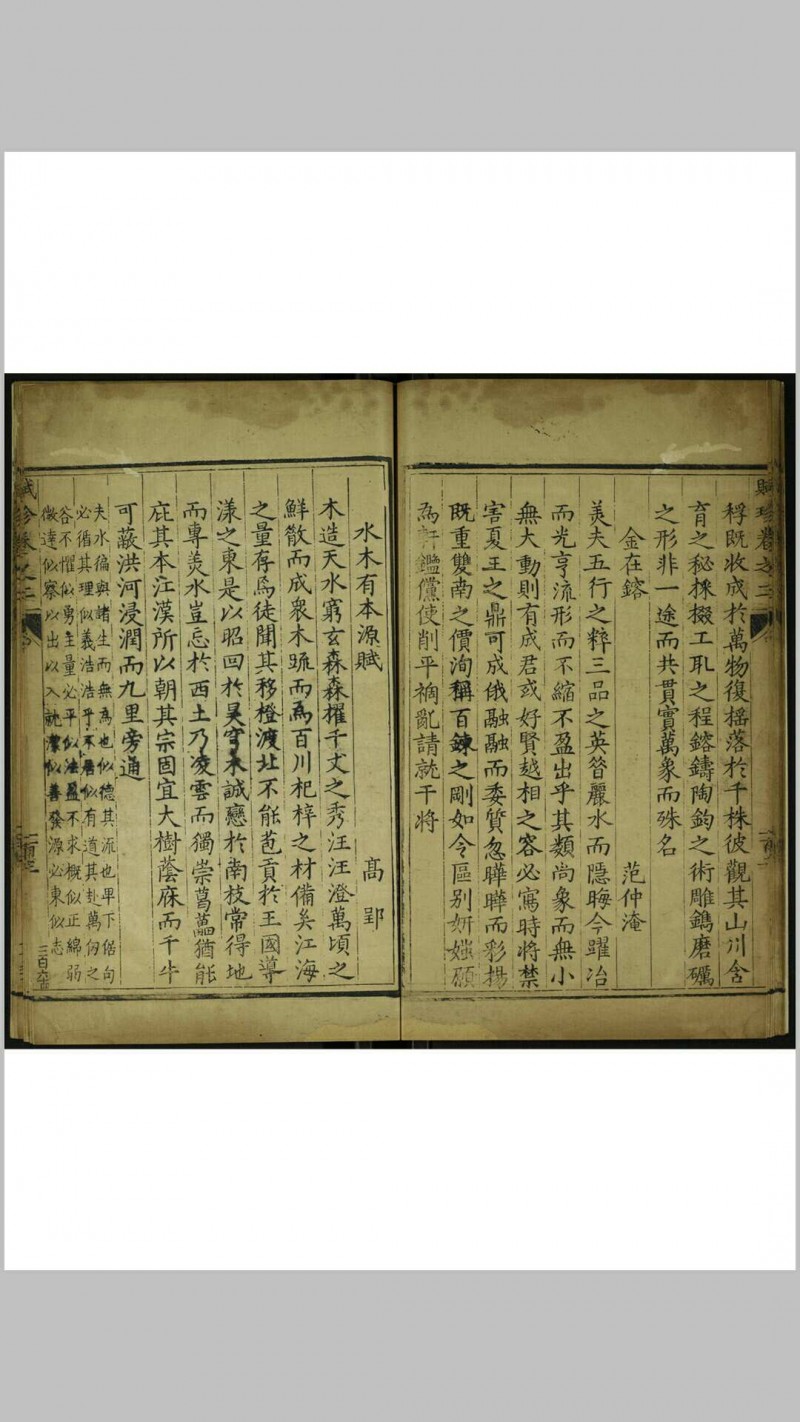 稃既收成於萬物復搖落於千株彼觀其山川含
育之秘採掇工㡭之程鎔鑄陶鈞之術雕鐫磨礪
之形非一途而共貫實萬象而殊名
金在鎔 范仲淹
美夫五行之粹三品之英昝麗水而隱晦今躍冶
而光亨流形而不縮不盈出乎其類尚象而無小
無大動則有成君或好賢越相之容必寫時將禁
害夏王之鼎可成俄融融而委質忽曄曄而彩揚
既重雙南之價洵稱百鍊之剛如令區別妍媸願
為軒鑑儻使削平禍亂請就干將
賦珍卷之三
水木有本源賦 高郢
木造天水窮玄森森櫂千丈之秀汪汪澄萬頃之
鮮散而成衆木踈而為百川杞梓之材備矣江海
之量存焉徒聞其移橙渡北不能苞貢於王國導
漾之東是以昭回於昊穹木誠戀於南枝常得地
而專美水豈忘於西土乃凌雲而獨崇葛藟猶能
庇其本江漢所以朝其宗固宜大樹蔭庥而千牛
可蔽洪河浸潤而九里旁通
夫水徧與諸生而無為也似德其流也卑下倨句
必循其理似義浩浩乎不屈似有道其赴萬仞之
谷不懼似勇主量必平似法盈不求概似正綿弱
微達似察以出以入就潔似善發源必東似志
賦珍卷之三